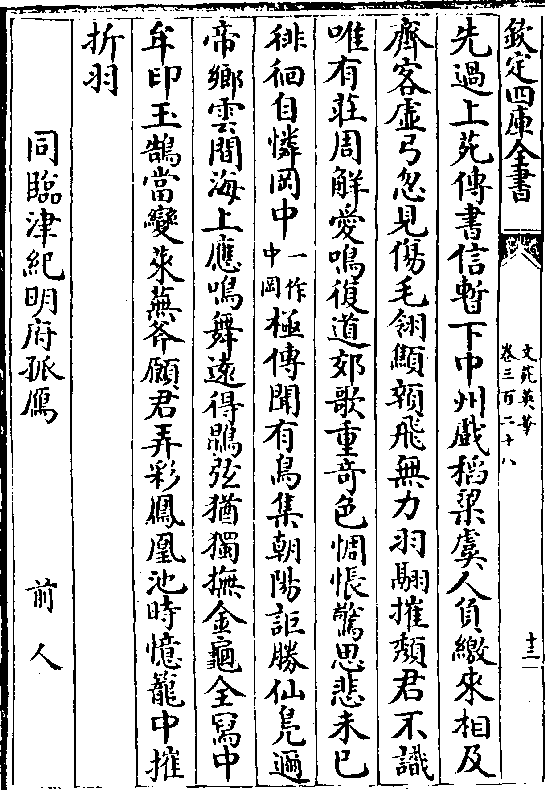 欽定四庫全書
文苑英華
卷三百二十八
十三
先過上苑傳書信暫下中州戲稻粱虞人負繳來相及
齊客虛弓忽見傷毛翎顦顇飛無力羽翮摧頽君不識
唯有莊周解愛鳴復道郊歌重奇色惆悵驚思悲未已
徘徊自憐罔中一作中罔極傳聞有鳥集朝陽詎勝仙鳬邇
帝鄉雲間海上應鳴舞遠得鵾弦猶獨撫金龜全寫中
牟印玉鵠當變萊蕪釜願君弄彩鳳凰池時憶籠中摧
折羽
同臨津紀明府孤鴈
前人